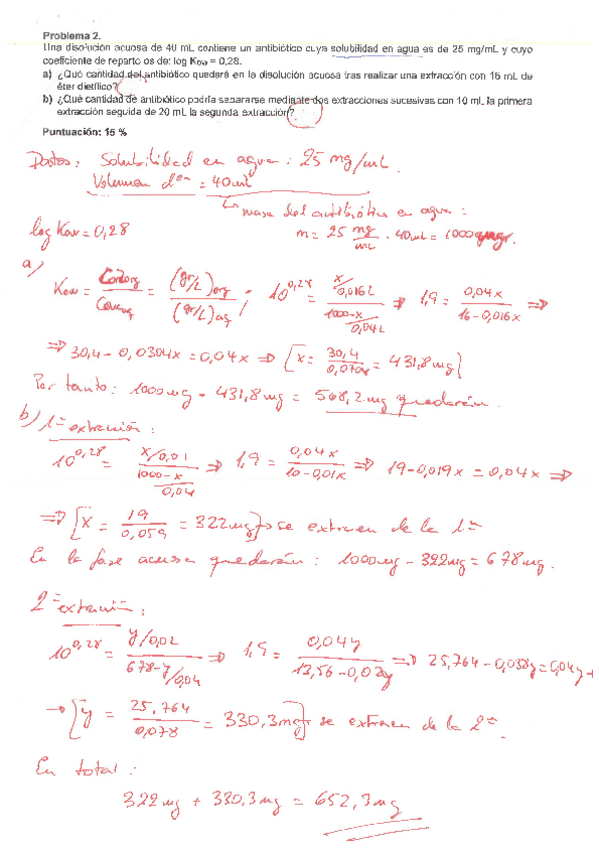 Problema 2.
Una disolución acuosa de 40 mL contiene un antibiótico cuya solubilidad en agua es de 25 mg/mL y cuyo
coeficiente de reparto es de: log Kow = 0,28.
a) ¿Qué cantidad del antibiótico quedará en la disolución acuosa tras realizar una extracción con 16 mL de
éter dietílico?
b) ¿Qué cantidad de antibiótico podría separarse mediante dos extracciones sucesivas con 10 mL la primera
extracción seguida de 20 mL la segunda extracción?
Puntuación: 15 %
Datos: Solubilidad en agua: 25 mg/mL.
Volumen dºn = 40 ml
↳ masa del antibiótico en agua:
log Kow = 0,28
m = 25 mg/mL · 40 mL = 1000
a)
Kow = Concorg / Concaq = (gr/L)org / (gr/L)aq ; 10^0,28 = x/0,016L / 1000-x/0,04L ⇒ 1,9 = 0,04x / 16-0,016x ⇒
⇒ 30,4 - 0,0304x = 0,04x ⇒ [x = 30,4 / 0,0704 = 431,8 mg]
Por tanto: 1000mg - 431,8 mg = 568,2 mg quedarán.
b) 1ª extracción:
10^0,28 = x/0,01 / 1000-x/0,04 ⇒ 1,9 = 0,04x / 10-0,01x ⇒ 19-0,019x = 0,04x ⇒
⇒ [x = 19 / 0,059 = 322mg] se extraen de la 1ª
En la fase acuosa quedarán: 1000mg - 322mg = 678 mg.
2ª extracción:
10^0,28 = y/0,02 / 678-y/0,04 ⇒ 1,9 = 0,04y / 13,56-0,02y ⇒ 25,764-0,038y = 0,04y
→ [y = 25,764 / 0,078 = 330,3mg] se extraen de la 2ª.
En total:
322mg + 330,3mg = 652,3mg